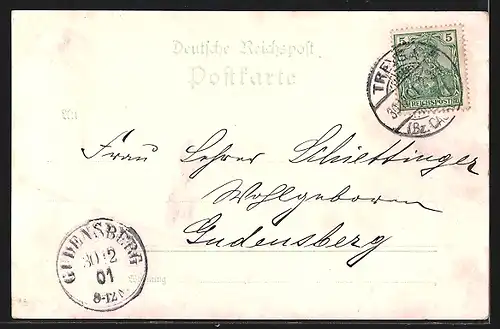 Deutsche Reichspost
Postkarte
5 5
REICHSPOST
TREYSA
(Bz.
An
Frau Lehrer Schiettinger
Wohlgeboren
Gudensberg
GUDENSBERG
30 12
01
8-12 N.
Wohnung